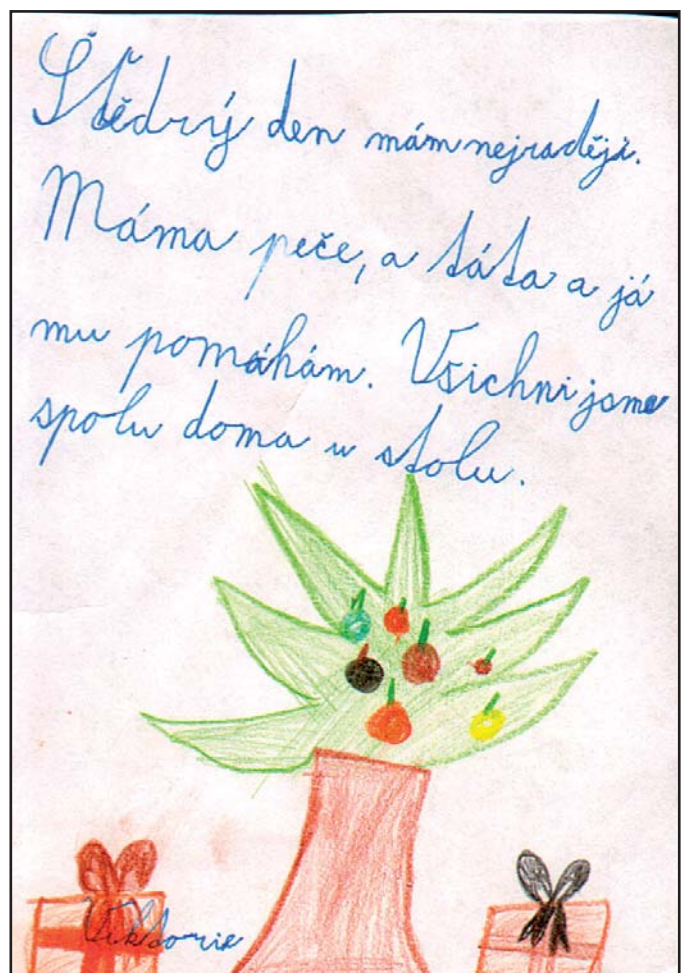 Štědrý den mám nejraději.
Máma peče, a táta a já
mu pomáhám. Všichni jsme
spolu doma u stolu.
Viktorie